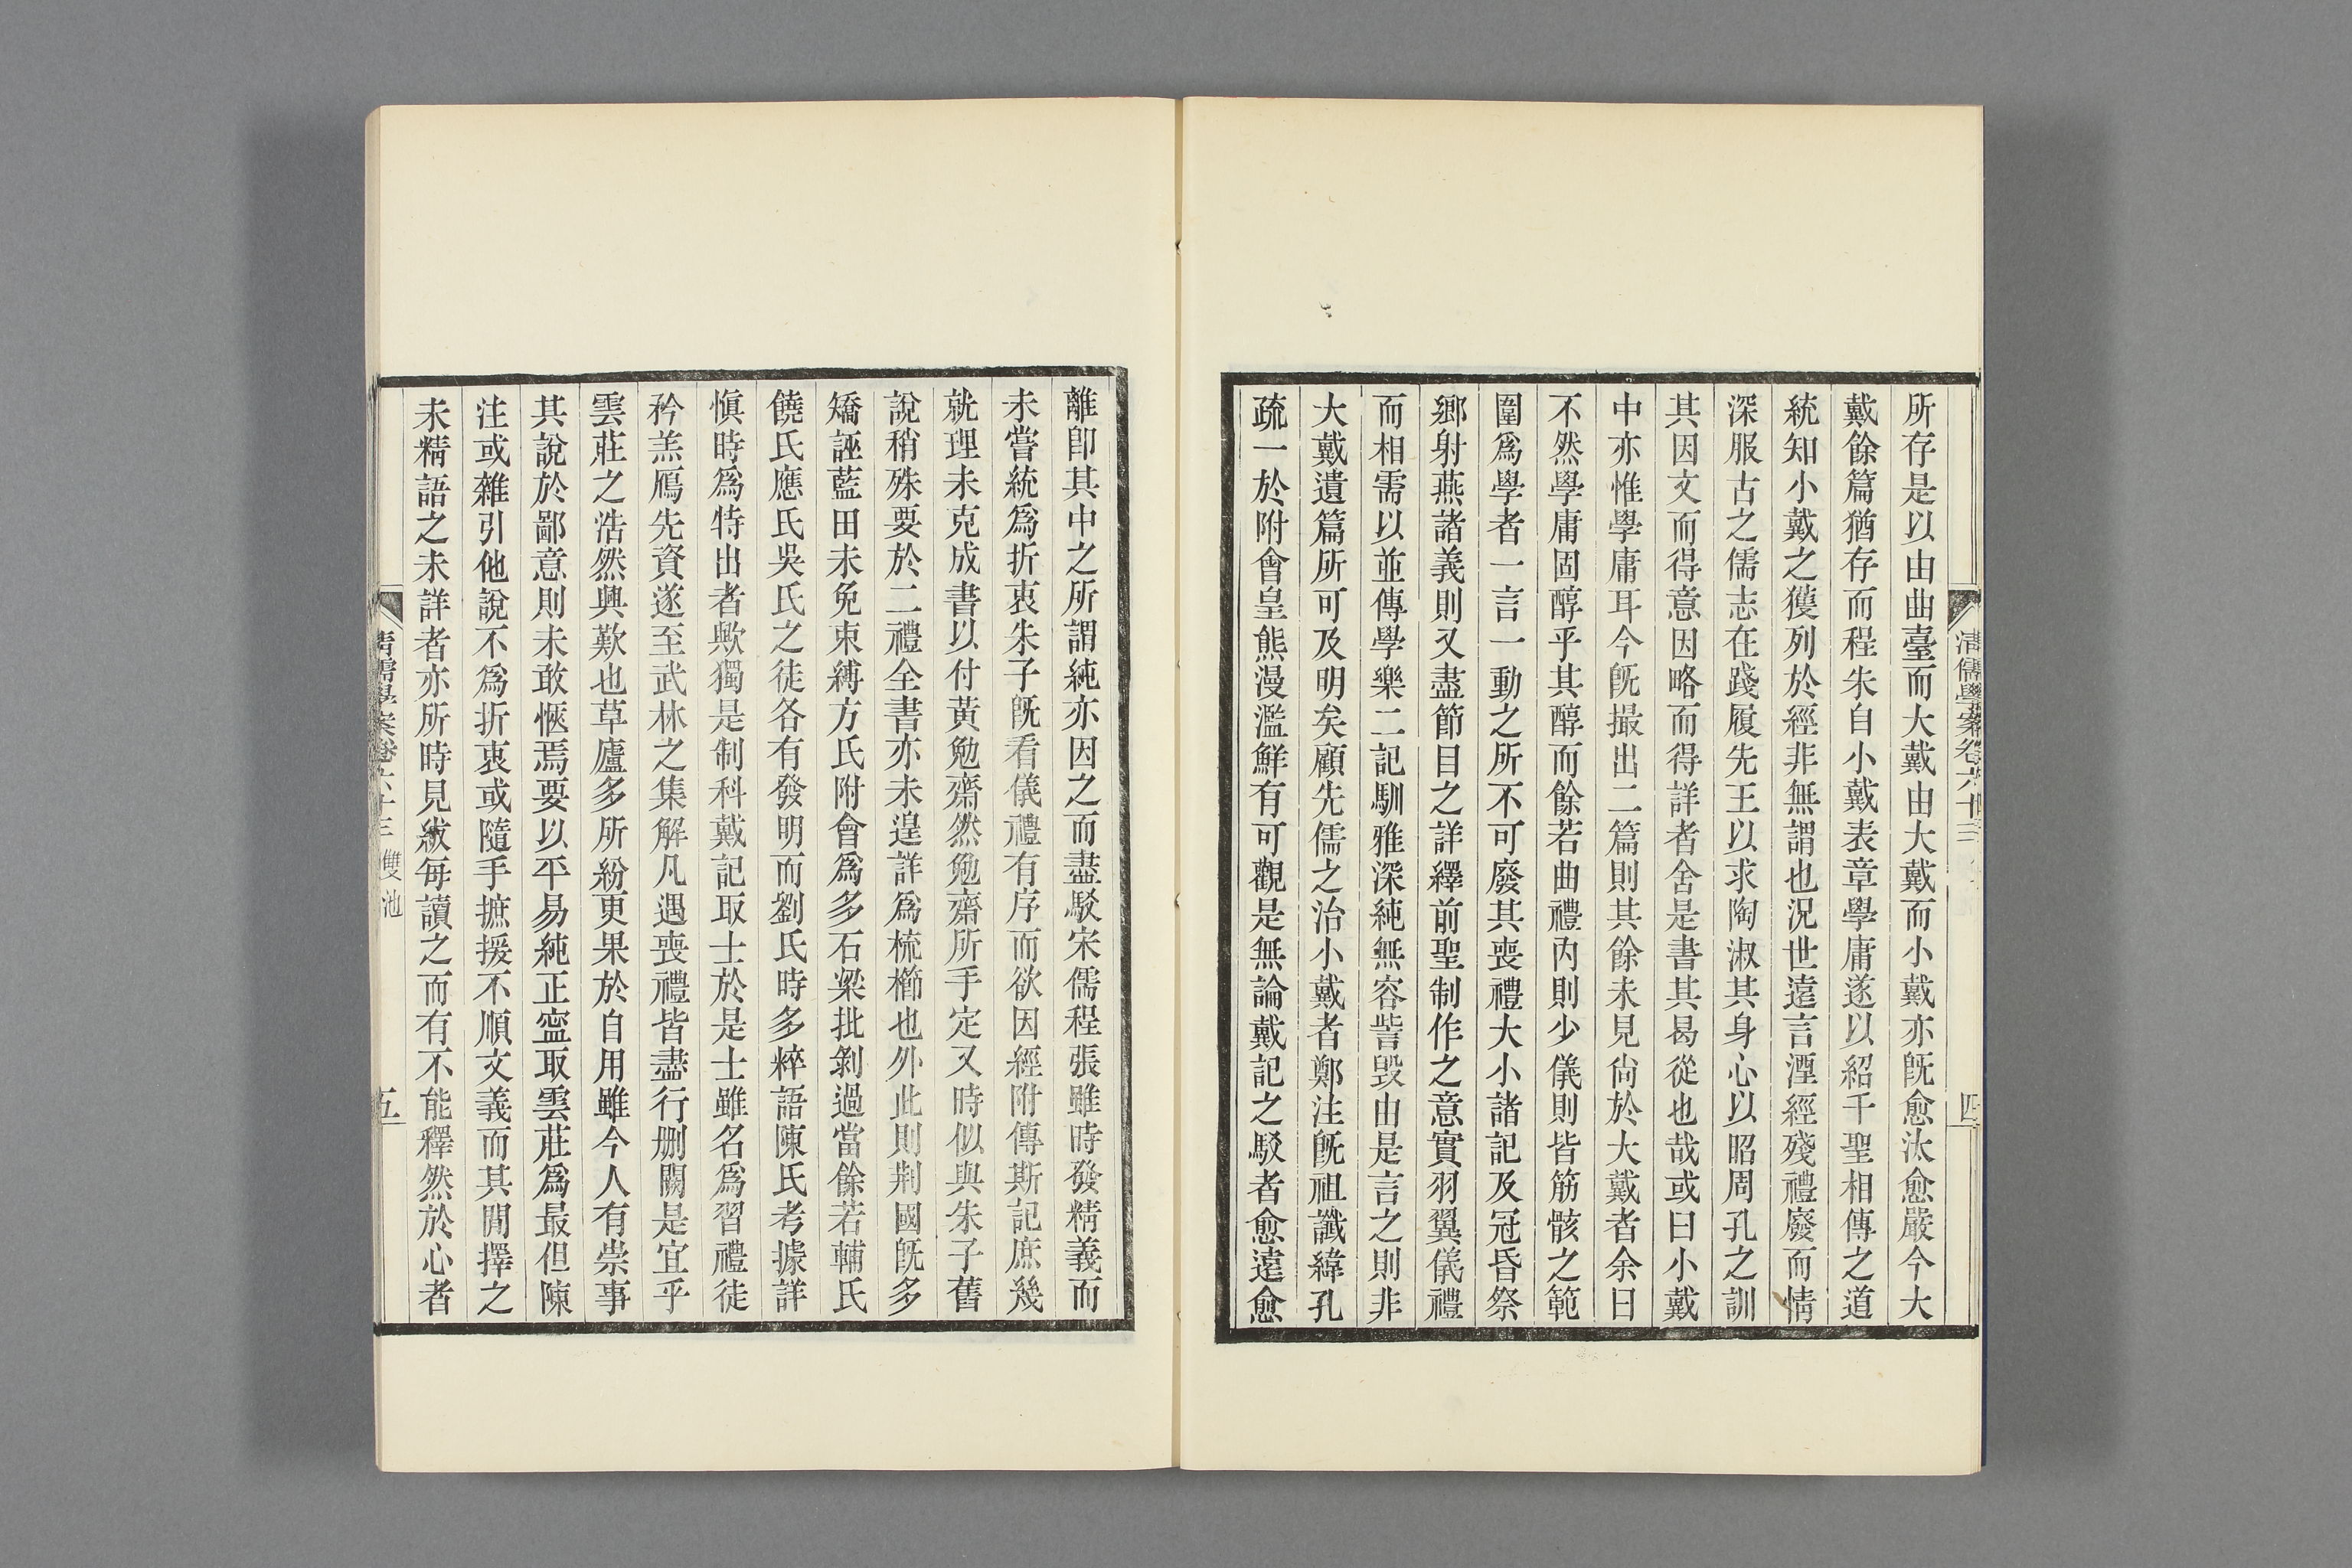 清儒學案卷六十三
四
所存是以由曲臺而大戴由大戴而小戴亦旣愈汰愈嚴今大
戴餘篇猶存而程朱自小戴表章學庸遂以紹千聖相傳之道
統知小戴之獲列於經非無謂也況世遠言湮經殘禮廢而情
深服古之儒志在踐履先王以求陶淑其身心以昭周孔之訓
其因文而得意因略而得詳者舍是書其曷從也哉或曰小戴
中亦惟學庸耳今旣撮出二篇則其餘未見尙於大戴者余曰
不然學庸固醇乎其醇而餘若曲禮內則少儀則皆筋骸之範
圍爲學者一言一動之所不可廢其喪禮大小諸記及冠昏祭
鄉射燕諸義則又盡節目之詳繹前聖制作之意實羽翼儀禮
而相需以並傳學樂二記馴雅深純無容訾毀由是言之則非
大戴遺篇所可及明矣顧先儒之治小戴者鄭注旣祖讖緯孔
疏一於附會皇熊漫濫鮮有可觀是無論戴記之駁者愈遠愈
離卽其中之所謂純亦因之而盡駁宋儒程張雖時發精義而
未嘗統爲折衷朱子旣看儀禮有序而欲因經附傳斯記庶幾
就理未克成書以付黃勉齋然勉齋所手定又時似與朱子舊
說稍殊要於二禮全書亦未遑詳爲梳櫛也外此則荆國旣多
矯誣藍田未免束縛方氏附會爲多石梁批剝過當餘若輔氏
饒氏應氏吳氏之徒各有發明而劉氏時多粹語陳氏考據詳
愼時爲特出者歟獨是制科戴記取士於是士雖名爲習禮徒
矜羔鴈先資遂至武林之集解凡遇喪禮皆盡行删闕是宜乎
雲莊之浩然興歎也草廬多所紛更果於自用雖今人有崇事
其說於鄙意則未敢愜焉要以平易純正寍取雲莊爲最但陳
注或雜引他說不爲折衷或隨手摭援不順文義而其閒擇之
未精語之未詳者亦所時見紱每讀之而有不能釋然於心者
清儒學案卷六十三 雙池
五